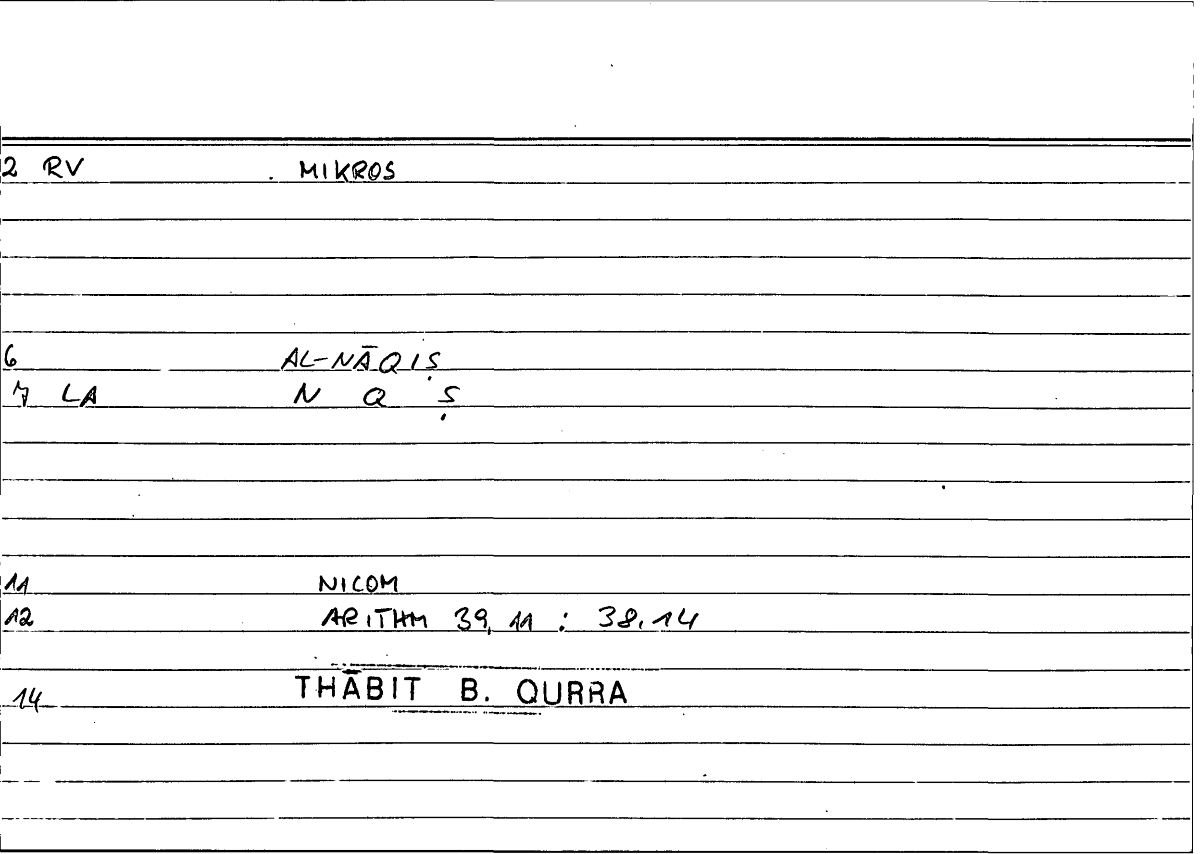 2 RV MIKROS
6 AL-NĀQIṢ
7 LA N Q Ṣ
11 NICOM
12 ARITHM 39,11 : 38,14
14 THĀBIT B. QURRA